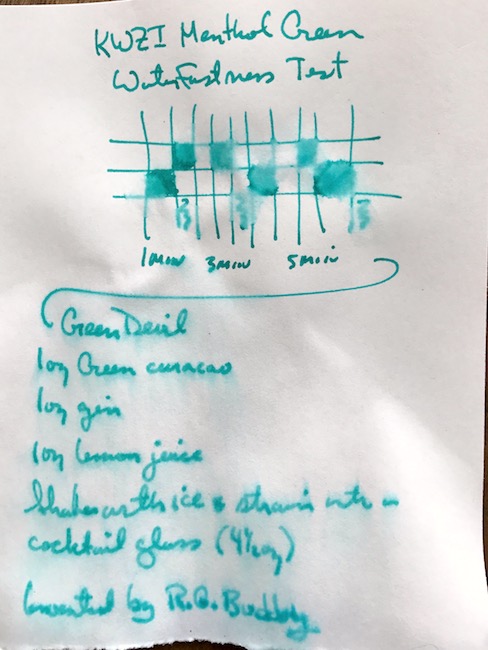 KWZI Menthol Green
Waterfastness Test
1 min 3 min 5 min
Green Devil
1 oz Green curacao
1 oz gin
1 oz lemon juice
Shake with ice & strain into a
cocktail glass (4½ oz)
Invented by R.G. Buckby